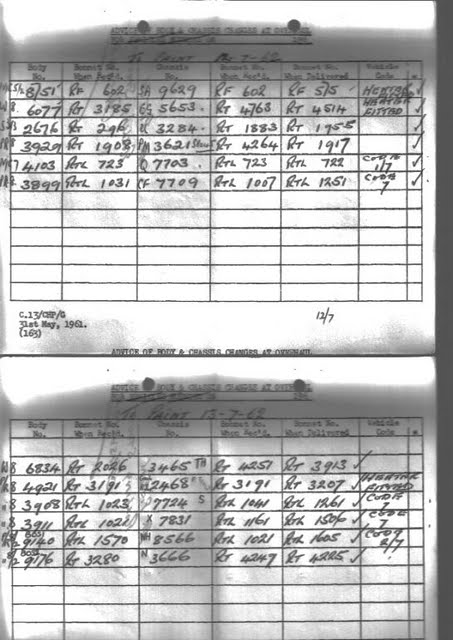 ADVICE OF BODY & CHASSIS CHANGES AT OVERHAUL
To PAINT 7-62
Body No. Bonnet No. When Rec'd. Chassis No. Bonnet No. When Rec'd. Bonnet No. When Delivered Vehicle Code *
8/51 RF 602 SA 9629 RF 602 RF 515 HEATER ✓
6077 RT 3185 5653. RT 4763 RT 4514 FITTED ✓
2676 RT 296 3284. RT 1883 RT 1955 ✓
3929 RT 1908 3621 RT 4264 RT 1917 ✓
4103 RTL 723 Q 7703. RTL 723 RTL 722 CODE 1/7 ✓
3899 RTL 1031 CF 7709 RTL 1007 RTL 1251 CODE 7 ✓
C.13/CHP/G
31st May, 1961.
(163)
12/7
ADVICE OF BODY & CHASSIS CHANGES AT OVERHAUL
ADVICE OF BODY & CHASSIS CHANGES AT OVERHAUL
To PAINT 13-7-62
Body No. Bonnet No. When Rec'd. Chassis No. Bonnet No. When Rec'd. Bonnet No. When Delivered Vehicle Code *
8 6834 RT 2026 3465 TH RT 4251 RT 3913 ✓
8 4921 RT 3191 2468 RT 3191 RT 3207 ✓ HEATER FITTED
8 3908 RTL 1023 7724 S RTL 1041 RTL 1261 ✓ CODE
8 3911 RTL 1028 X 7831 RTL 1161 RTL 1506 ✓ CODE 7
9140 RTL 1570 NH 8566 RTL 1021 RTL 1605 ✓ CODE 2/7
9176 RT 3280 N 3666 RT 4247 RT 4225 ✓